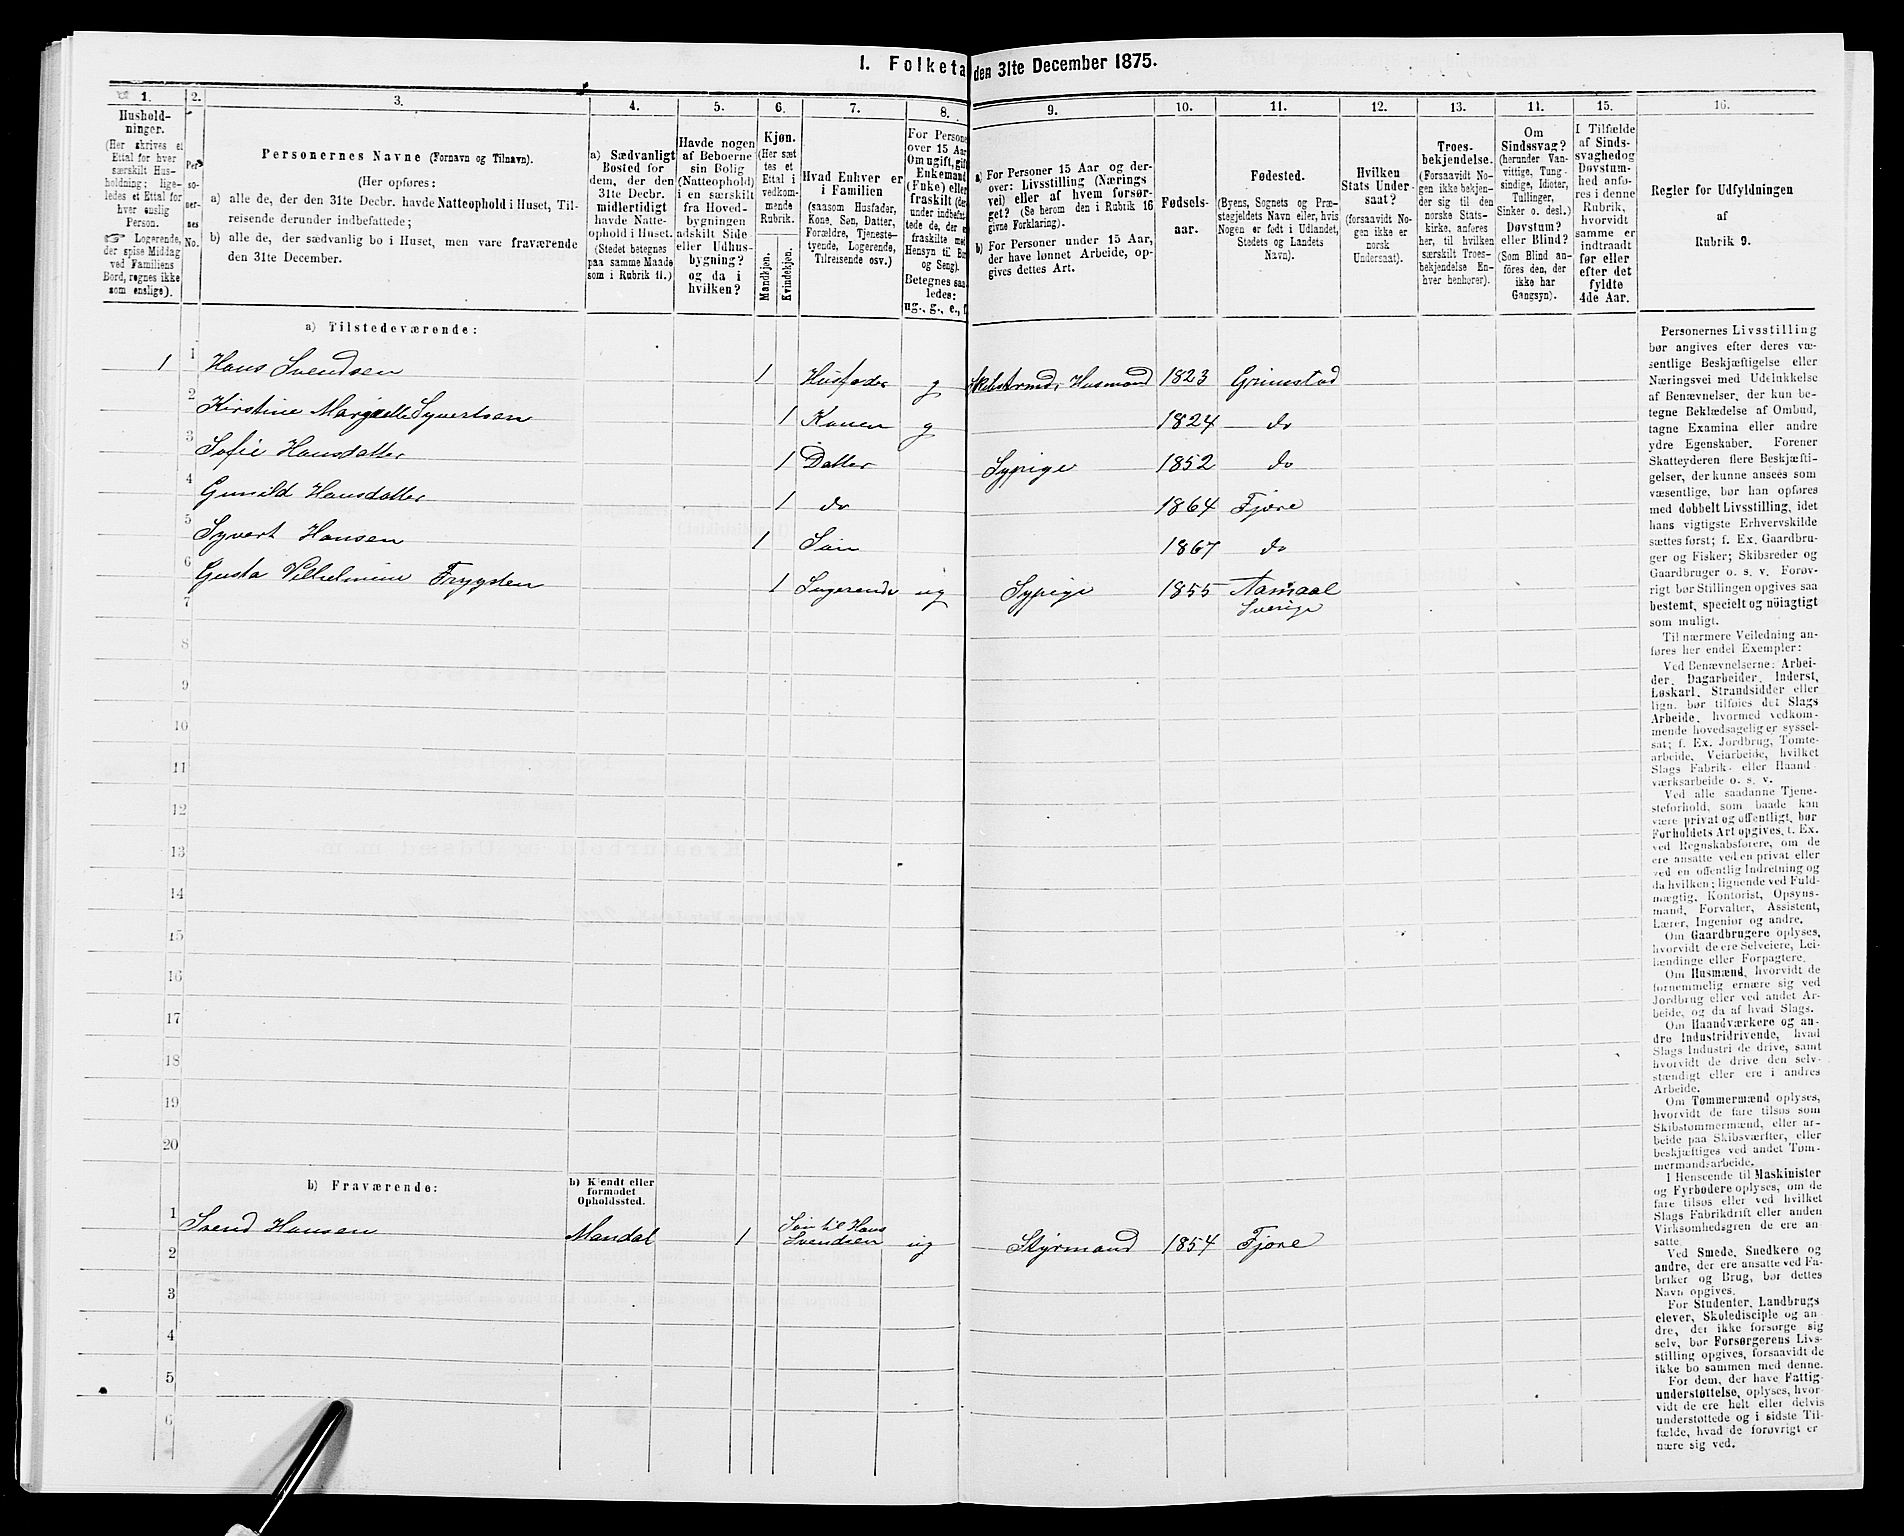 I. Folketa den 31te December 1875.
1. 2. 3. 4. 5. 6. 7. 8. 9. 10. 11. 12. 13. 11. 15. 16.
Hushold-
ninger.
(Her skrives et
Ettal for hver
særskilt Hus-
holdning; lige-
ledes et Ettal for
hver enslig
Person.
Logerende,
der spise Middag
ved Familiens
Bord, regnes ikke
som enslige).
Per-
so-
ner-
nes
No.
Personernes Navne (Fornavn og Tilnavn).
(Her opføres:
a) alle de, der den 31te Decbr. havde Natteophold i Huset, Til-
reisende derunder indbefattede;
b) alle de, der sædvanlig bo i Huset, men vare fraværende
den 31te December.
a) Sædvanligt
Bosted for
dem, der den
31te Decbr.
midlertidigt
havde Natte-
ophold i Huset.
(Stedet betegnes
paa samme Maade
som i Rubrik 11.)
Havde nogen
af Beboerne
sin Bolig
(Natteophold)
i en særskilt
fra Hoved-
bygningen
adskilt Side
eller Udhus-
bygning?
og da i
hvilken?
Kjøn.
(Her sæt-
tes et
Ettal i
vedkom-
mende
Rubrik.
Mandkjøn.
Kvindekjøn.
Hvad Enhver er
i Familien
(saasom Husfader,
Kone, Søn, Datter,
Forældre, Tjeneste-
tyende, Logerende,
Tilreisende osv.)
For Persone
over 15 Aar
Om ugift, gift
Enkemand
(Enke) eller
fraskilt (der
under indbefat-
tede de, der e
fraskilte med
Hensyn til Bo
og Seng).
Betegnes saa
ledes:
ug., g., e., f
a) For Personer 15 Aar og der-
over: Livsstilling (Nærings
vei) eller af hvem forsør-
get? (Se herom den i Rubrik 16
givne Forklaring).
b) For Personer under 15 Aar,
der have lønnet Arbeide, op-
gives dettes Art.
Fødsels-
aar.
Fødested.
(Byens, Sognets og Præ-
stegjeldets Navn eller, hvis
Nogen er født i Udlandet,
Stedets og Landets
Navn).
Hvilken
Stats Under-
saat?
(forsaavidt No-
gen ikke er
norsk
Undersaat).
Troes-
bekjendelse.
(Forsaavidt No-
gen ikke bekjen-
der sig til den
norske Stats-
kirke, anføres
her, til hvilken
særskilt Troes-
bekjendelse En-
hver henhører).
Om
Sindssvag?
(herunder Van-
vittige, Tung-
sindige, Idioter,
Sinker o. desl.)
Døvstum?
eller Blind?
(Som Blind an-
føres den, der
ikke har
Gangsyn).
I Tilfælde
af Sinds-
svaghedog
Døvstum-
hed anfø-
res i denne
Rubrik,
hvorvidt
samme er
indtraadt
før eller
efter det
fyldte
4de Aar.
Regler for Udfyldningen
af
Rubrik 9.
a) Tilstedeværende:
1 1 Hans Svendsen 1 Husfader g Husmand 1823 Grimstad
2 Kirstine Syvertsen 1 Konen g 1824 do
3 Sofie Hansdatter 1 Datter Sypige 1852 do
4 Gunild Hansdatter 1 do 1864 Fjøre
5 Syvert Hansen 1 Søn 1867 do
6 Gusta Vilhelmine Frygsten 1 Logerende ug Sypige 1855 Aamaal
Sverige
7
8
9
10
11
12
13
14
15
16
17
18
19
20
b) Fraværende:
b) Kjendt eller
formodet
Opholdssted.
1 Svend Hansen Mandal 1 Søn til Hans
Svendsen ug Styrmand 1854 Fjøre
2
3
4
5
6
Personernes Livsstilling
bør angives efter deres væ-
sentlige Beskjæftigelse eller
Næringsvei med Udelukkelse
af Benævnelser, der kun be-
tegne Beklædelse af Ombud,
tagne Examina eller andre
ydre Egenskaber. Forener
Skatteyderen flere Beskjæfti-
gelser, der kunne ansees som
væsentlige, bør han opføres
med dobbelt Livsstilling, idet
hans vigtigste Erhvervskilde
sættes først; f. Ex. Gaardbru-
ger og Fisker; Skibsreder og
Gaardbruger o. s. v. Forøv-
rigt bør Stillingen opgives saa
bestemt, specielt og nöiagtigt
som muligt.
Til nærmere Veiledning an-
føres her endel Exempler:
Ved Benævnelserne: Arbei-
der, Dagarbeider, Inderst,
Løskarl, Strandsidder eller
lign. bør tilføies det Slags
Arbeide, hvormed vedkom-
mende hovedsagelig er syssel-
sat; f. Ex. Jordbrug, Tomte-
arbeide, Veiarbeide, hvilket
Slags Fabrik- eller Haand-
værksarbeide o. s. v.
Ved alle saadanne Tjene-
steforhold, som baade kan
være privat og offentligt, bør
Forholdets Art opgives, t. Ex.
ved Regnskabsførere, om de
ere ansatte ved en privat eller
ved en offentlig Indretning og
da hvilken; lignende ved Fuld-
mægtig, Kontorist, Opsyns-
mand, Forvalter, Assistent,
Lærer, Ingeniør og andre.
Om Gaardbrugere oplyses,
hvorvidt de ere Selveiere, Lei-
lændinge eller Forpagtere.
Om Husmænd, hvorvidt de
fornemmelig ernære sig ved
Jordbrug eller ved andet Ar-
beide, og da af hvad Slags.
Om Haandværkere og an-
dre Industridrivende, hvad
Slags Industri de drive, samt
hvorvidt de drive den selv-
stændigt eller ere i andres
Arbeide.
Om Tømmermænd oplyses,
hvorvidt de fare tilsøs som
Skibstømmermænd, eller ar-
beide paa Skibsværfter, eller
beskjæftiges ved andet Tøm-
mermandsarbeide.
I Henseende til Maskinister
og Fyrbødere oplyses, om de
fare tilsøs eller ved hvilket
Slags Fabrikdrift eller anden
Virksomhedsgren de ere an-
satte.
Ved Smede, Snedkere og
andre, der ere ansatte ved Fa-
briker og Brug, bør dettes
Navn opgives.
For Studenter, Landbrugs
elever, Skoledisciple og an-
dre, der ikke forsørge sig
selv, bør Forsørgerens Livs-
stilling opgives, forsaavidt de
ikke bo sammen med denne.
For dem, der have Fattig-
understøttelse, oplyses, hvor-
vidt de ere helt eller delvis
understøttede og i sidste Til-
fælde, hvad de forøvrigt er
nære sig ved.